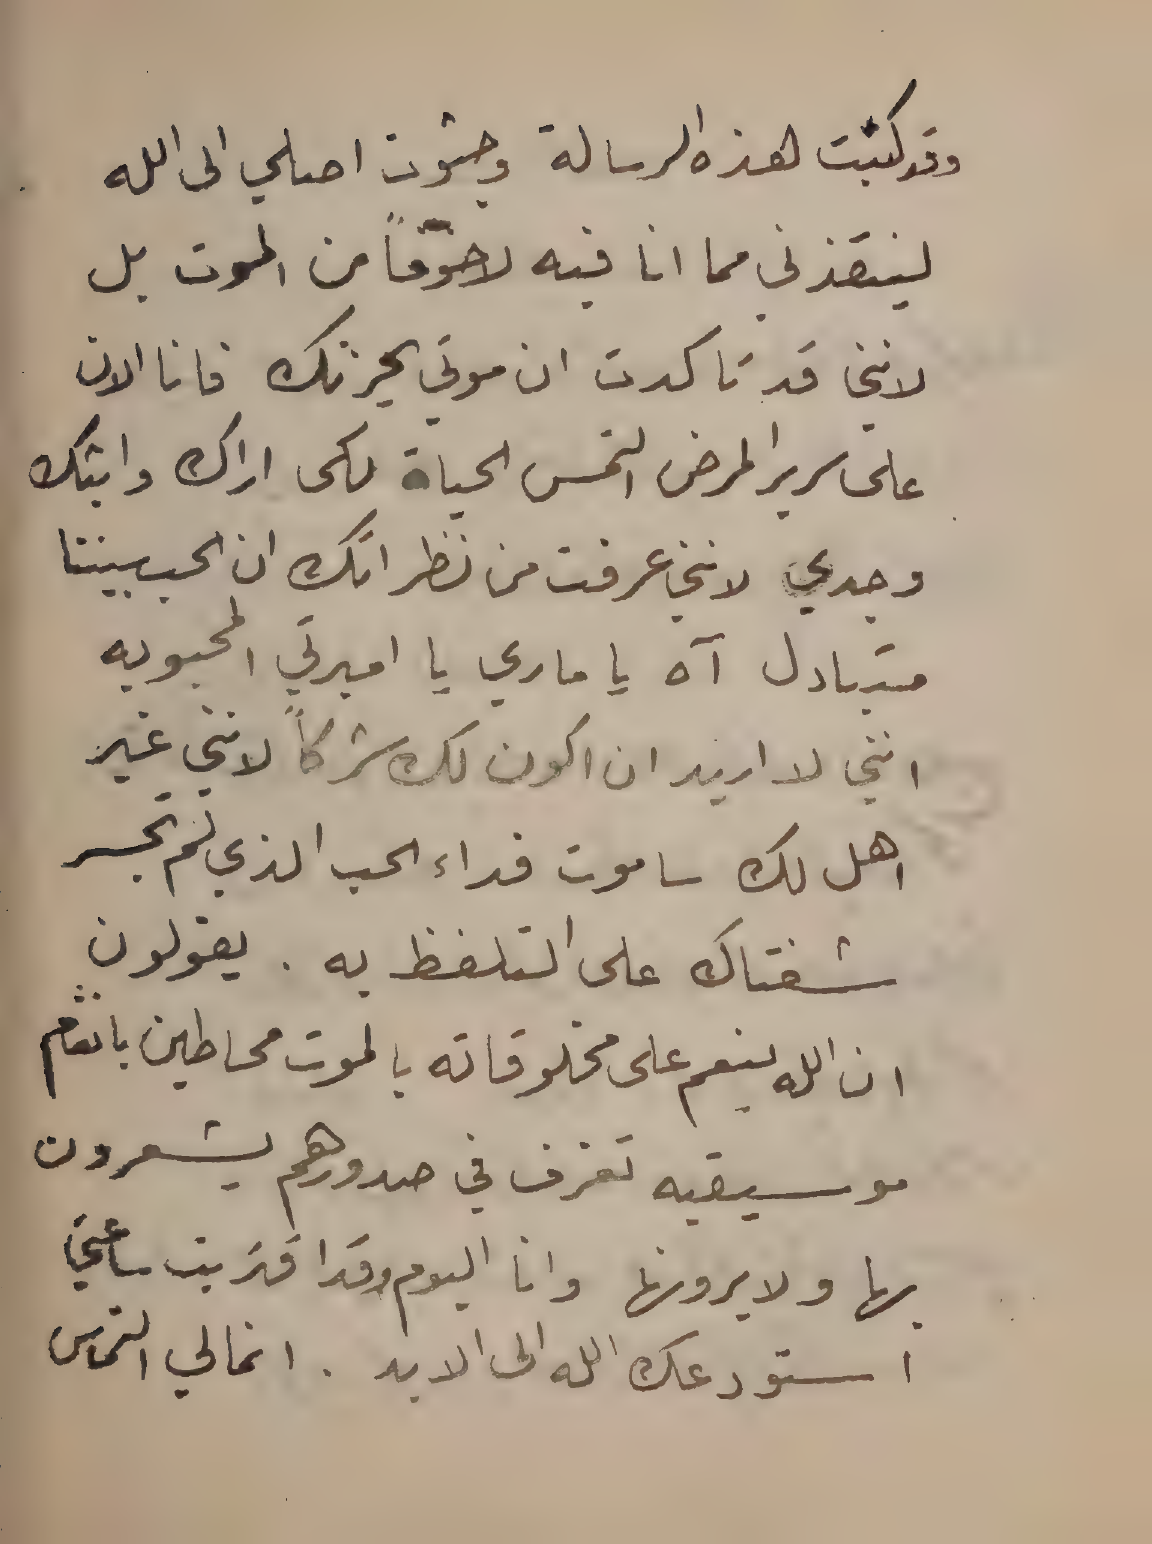 وقد كتبت هذه الرسالة وجثوت اصلي الى الله
لينقذني مما انا فيه لا خوفاً من الموت بل
لانني قد تاكدت ان موتي يحزنك فانا الان
على سرير المرض التمس الحياة لكى اراك وابثك
وجدي لانني عرفت من نظراتك ان الحب بيننا
متبادل آه يا ماري يا اميرتي المحبوبه
انني لا اريد ان اكون لك شركاً لانني غير
اهل لك ساموت فداء الحب الذي لم تجسر
شفتاك على التلفظ به . يقولون
ان الله ينعم على مخلوقاته بالموت محاطين بانغام
موسيقيه تعزف في صدورهم يشعرون
بها ولا يرونها وانا اليوم وقد اقتربت ساعتي
استودعك الله الى الابد . انما لي التماس